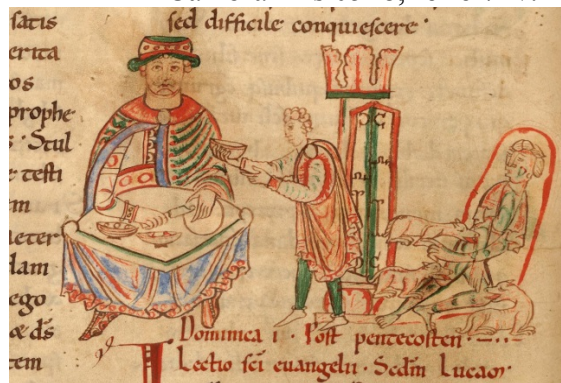 sed difficile conquiescere ·
satis
erita
os
prophe
s · Stul
e testi
m
aeter
dam
ego
tem
Dominica i · Post pentecosten ·
Lectio sci euangelii · Scdm Lucam ·